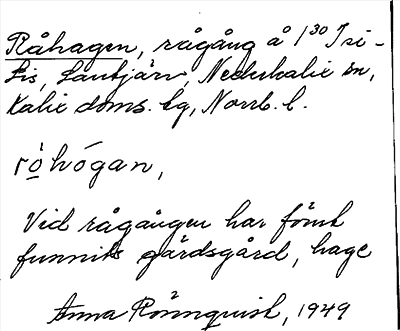 Råhagen, rågång å 1³⁰ Tri-
lis, Lantjärv, Nederkalix sn,
Kalix doms. lg, Norrb. l.
rö̀hógan,
Vid rågången har förut
funnits gärdsgård, hage
Anna Rönnquist, 1949